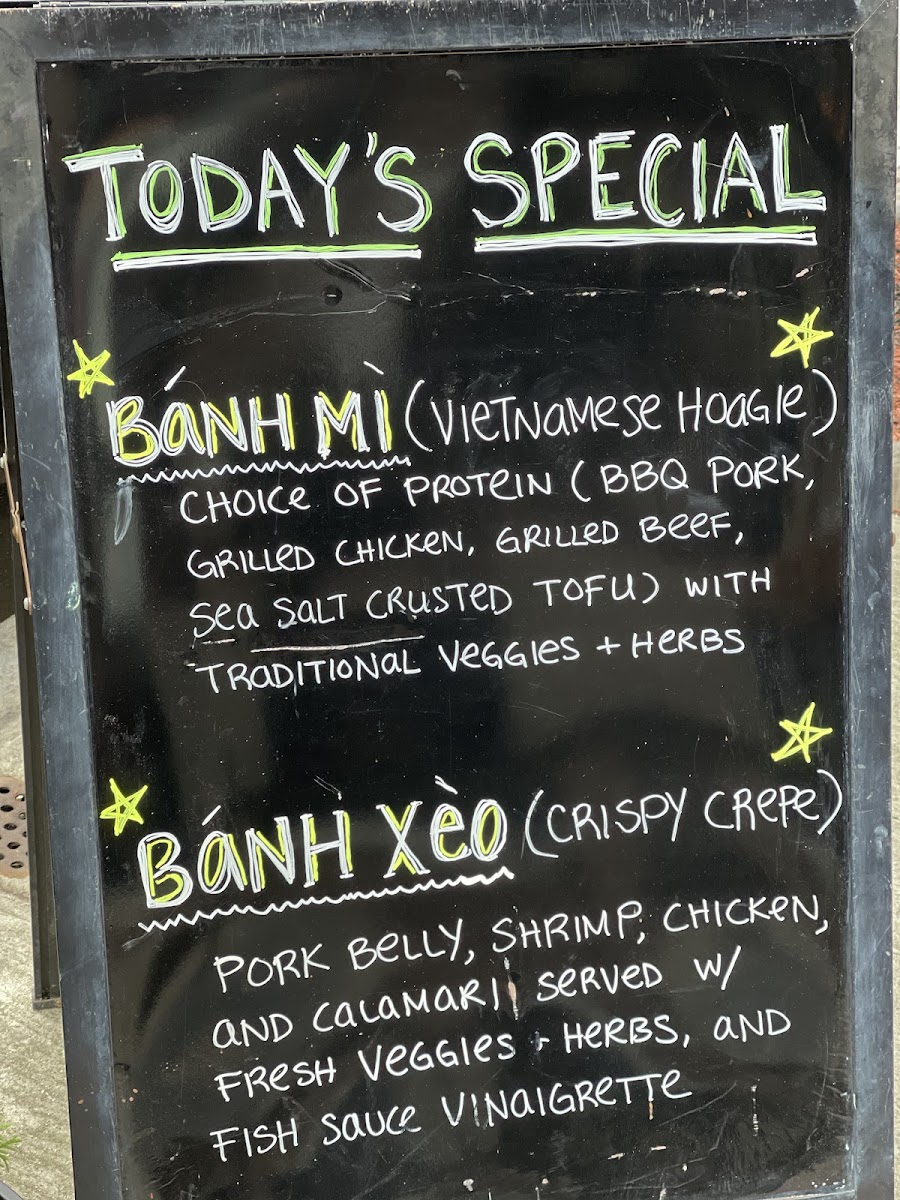 TODAY'S SPECIAL
BÁNH MÌ (VIETNAMESE HOAGIE)
CHOICE OF PROTEIN (BBQ PORK,
GRILLED CHICKEN, GRILLED BEEF,
SEA SALT CRUSTED TOFU) WITH
TRADITIONAL VEGGIES + HERBS
BÁNH XÈO (CRISPY CREPE)
PORK BELLY, SHRIMP, CHICKEN,
AND CALAMARI SERVED W/
FRESH VEGGIES + HERBS, AND
FISH SAUCE VINAIGRETTE